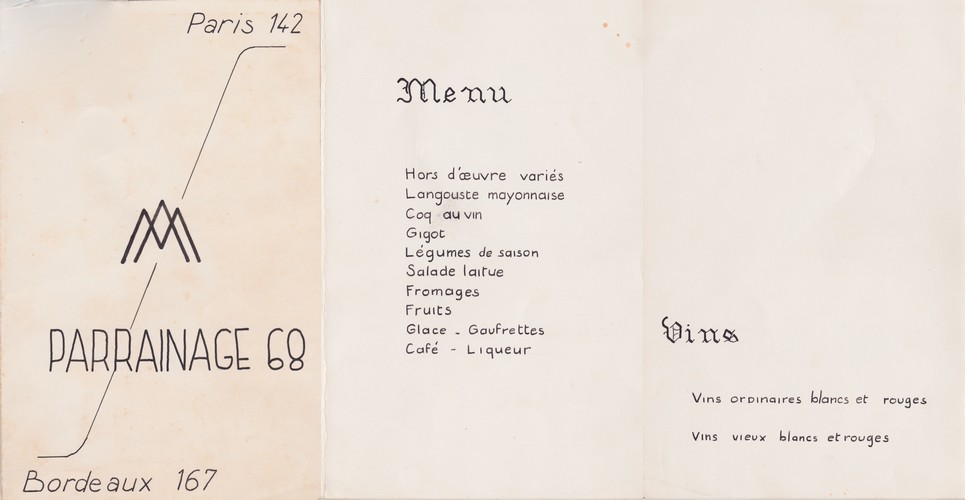 Paris 142
PARRAINAGE 68
Bordeaux 167
Menu
Hors d'œuvre variés
Langouste mayonnaise
Coq au vin
Gigot
Légumes de saison
Salade laitue
Fromages
Fruits
Glace - Gaufrettes
Café - Liqueur
Vins
Vins ordinaires blancs et rouges
Vins vieux blancs et rouges